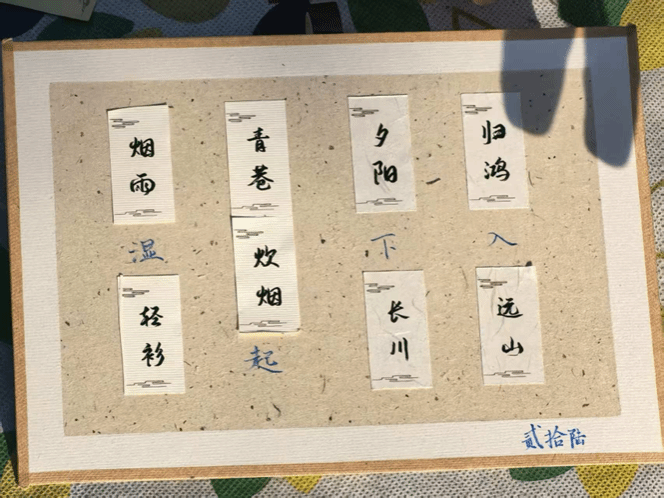 归鸿入远山
夕阳下长川
青巷炊烟起
烟雨湿轻衫
贰拾陆